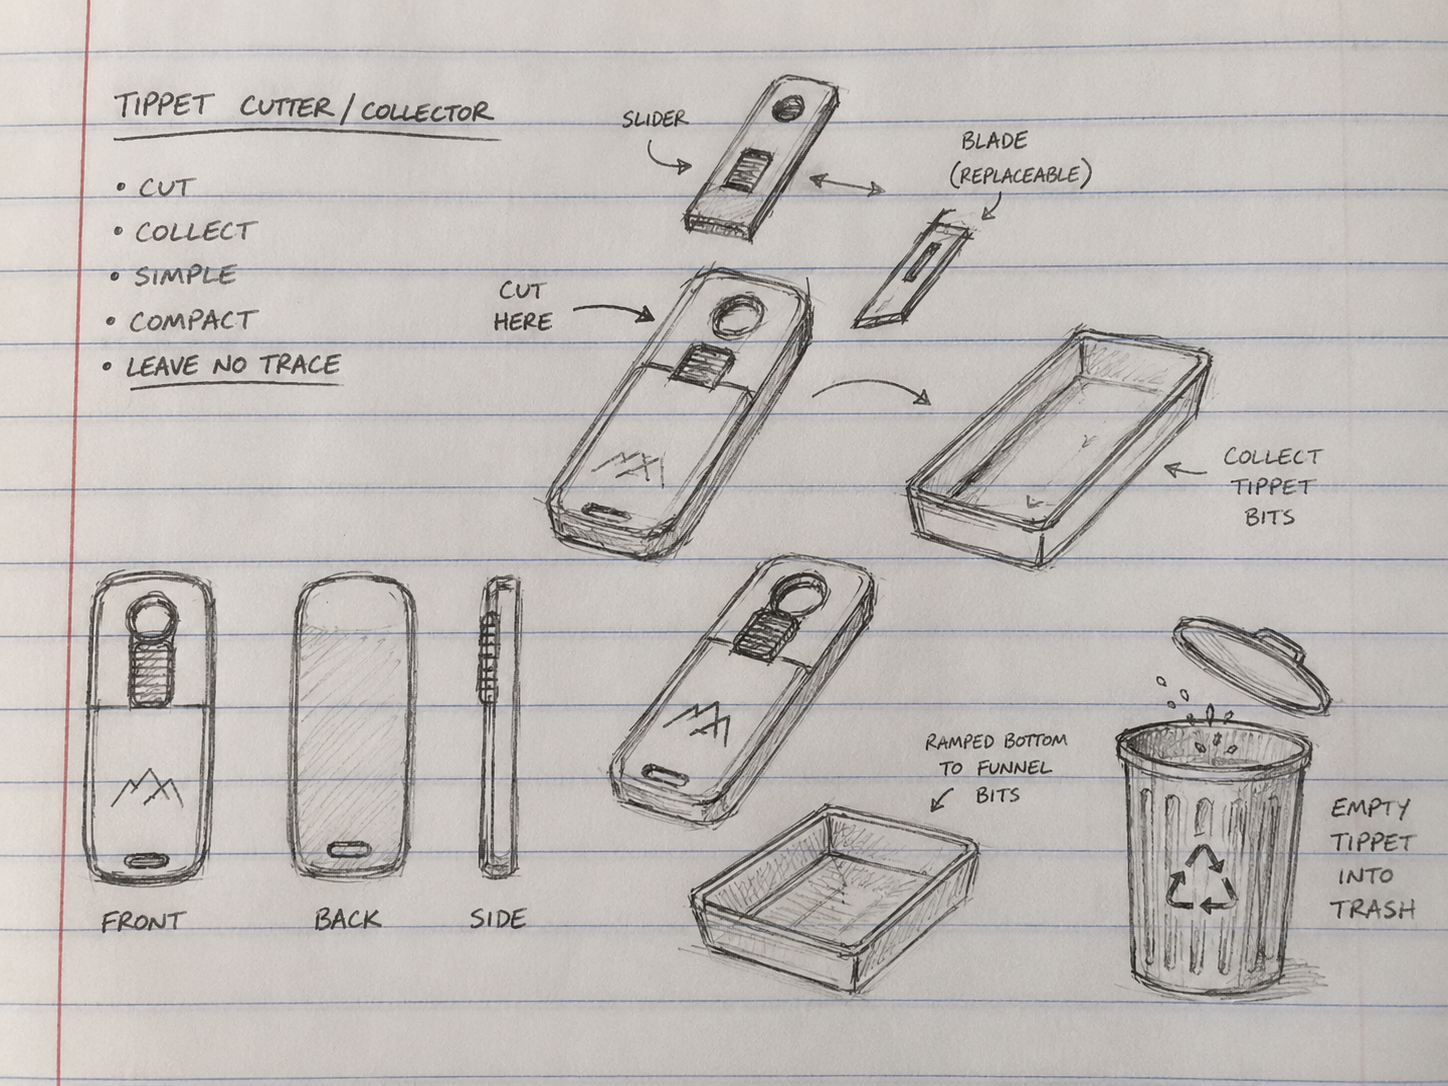 TIPPET CUTTER/COLLECTOR
• CUT
• COLLECT
• SIMPLE
• COMPACT
• LEAVE NO TRACE
SLIDER
BLADE
(REPLACEABLE)
CUT
HERE
COLLECT
TIPPET
BITS
FRONT
BACK
SIDE
RAMPED BOTTOM
TO FUNNEL
BITS
EMPTY
TIPPET
INTO
TRASH